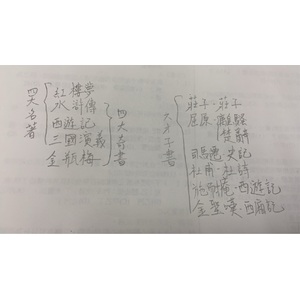 四大名著
紅樓夢
水滸傳
西遊記
三國演義
金瓶梅
四大奇書
六才子書
莊子·莊子
屈原·離騷
楚辭
司馬遷·史記
杜甫·杜詩
施耐庵·西遊記
金聖嘆·西廂記